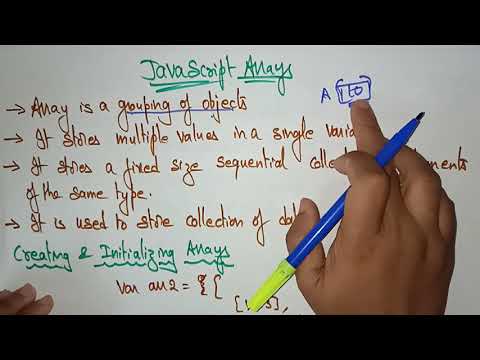 JavaScript Arrays
→ Array is a grouping of objects
A [10]
→ It stores multiple values in a single
→ It stores a fixed size sequential
of the same type.
→ It is used to store collection of
Creating & Initializing Arrays
Var arr2 = { [